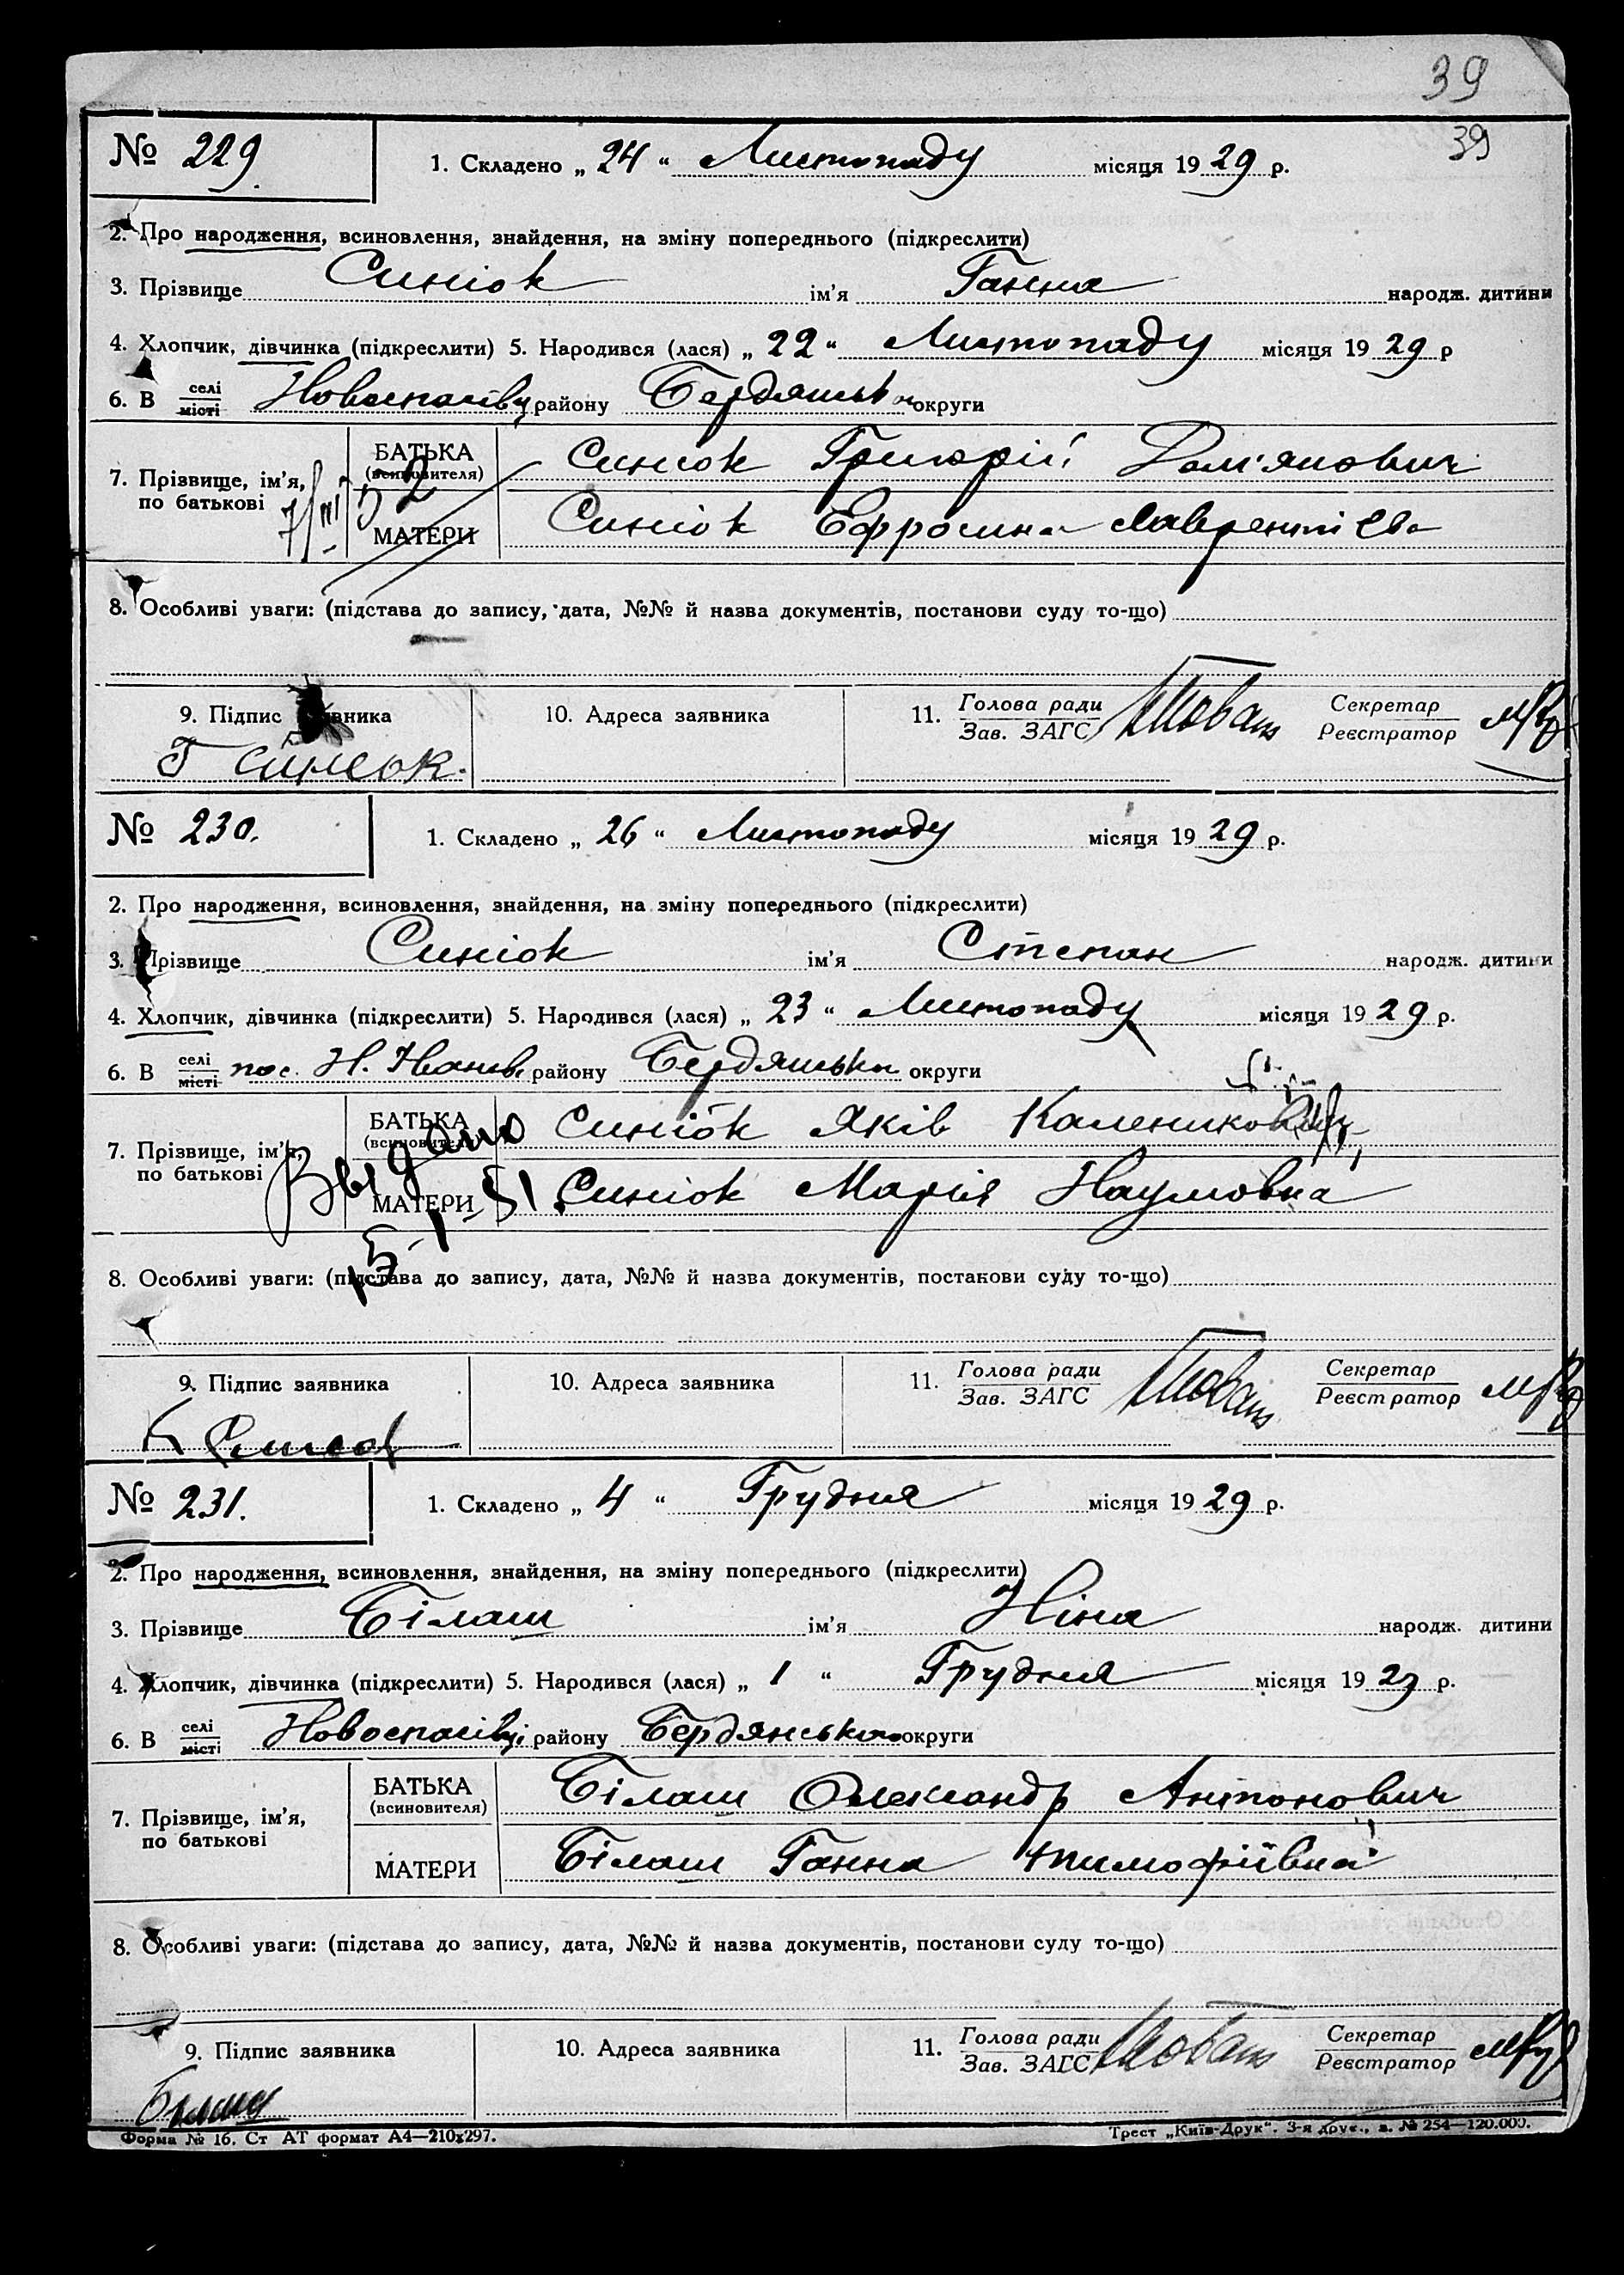 39
39
№ 229. 1. Складено „ 24 “ Листопаду місяця 19 29 р.
2. Про народження, всиновлення, знайдення, на зміну попереднього (підкреслити)
3. Прізвище Синіок ім’я Ганна народж. дитини
4. Хлопчик, дівчинка (підкреслити) 5. Народився (лася) „ 22 “ Листопаду місяця 19 29 р
6. В селі місті Новоспасівці району Бердянської округи
7. Прізвище, ім’я, по батькові БАТЬКА (всиновителя) Синіок Григорій Дем'янович
МАТЕРИ Синіок Ефросина Лаврентіева
8. Особливі уваги: (підстава до запису, дата, №№ й назва документів, постанови суду то-що)
9. Підпис заявника 10. Адреса заявника 11. Голова ради Зав. ЗАГС Секретар Реєстратор
Г Синіок.
№ 230. 1. Складено „ 26 “ Листопаду місяця 19 29 р.
2. Про народження, всиновлення, знайдення, на зміну попереднього (підкреслити)
3. Прізвище Синіок ім’я Степан народж. дитини
4. Хлопчик, дівчинка (підкреслити) 5. Народився (лася) „ 23 “ Листопаду місяця 19 29 р.
6. В селі місті пос. Н. району Бердянської округи
7. Прізвище, ім’я, по батькові БАТЬКА (всиновителя) Синіок Яків Каленикович
МАТЕРИ Синіок Марія Наумовна
Выдано
15-1-51
8. Особливі уваги: (підстава до запису, дата, №№ й назва документів, постанови суду то-що)
9. Підпис заявника 10. Адреса заявника 11. Голова ради Зав. ЗАГС Секретар Реєстратор
№ 231. 1. Складено „ 4 “ Грудня місяця 19 29 р.
2. Про народження, всиновлення, знайдення, на зміну попереднього (підкреслити)
3. Прізвище Білаш ім’я Ніна народж. дитини
4. Хлопчик, дівчинка (підкреслити) 5. Народився (лася) „ 1 “ Грудня місяця 19 29 р.
6. В селі місті Новоспасівці району Бердянської округи
7. Прізвище, ім’я, по батькові БАТЬКА (всиновителя) Білаш Олександр Антонович
МАТЕРИ Білаш Ганна Тимофіївна
8. Особливі уваги: (підстава до запису, дата, №№ й назва документів, постанови суду то-що)
9. Підпис заявника 10. Адреса заявника 11. Голова ради Зав. ЗАГС Секретар Реєстратор
Білаш
Форма № 16. Ст АТ формат А4—210х297. Трест „Київ-Друк“. 3-я друк., з. № 254—120.000.